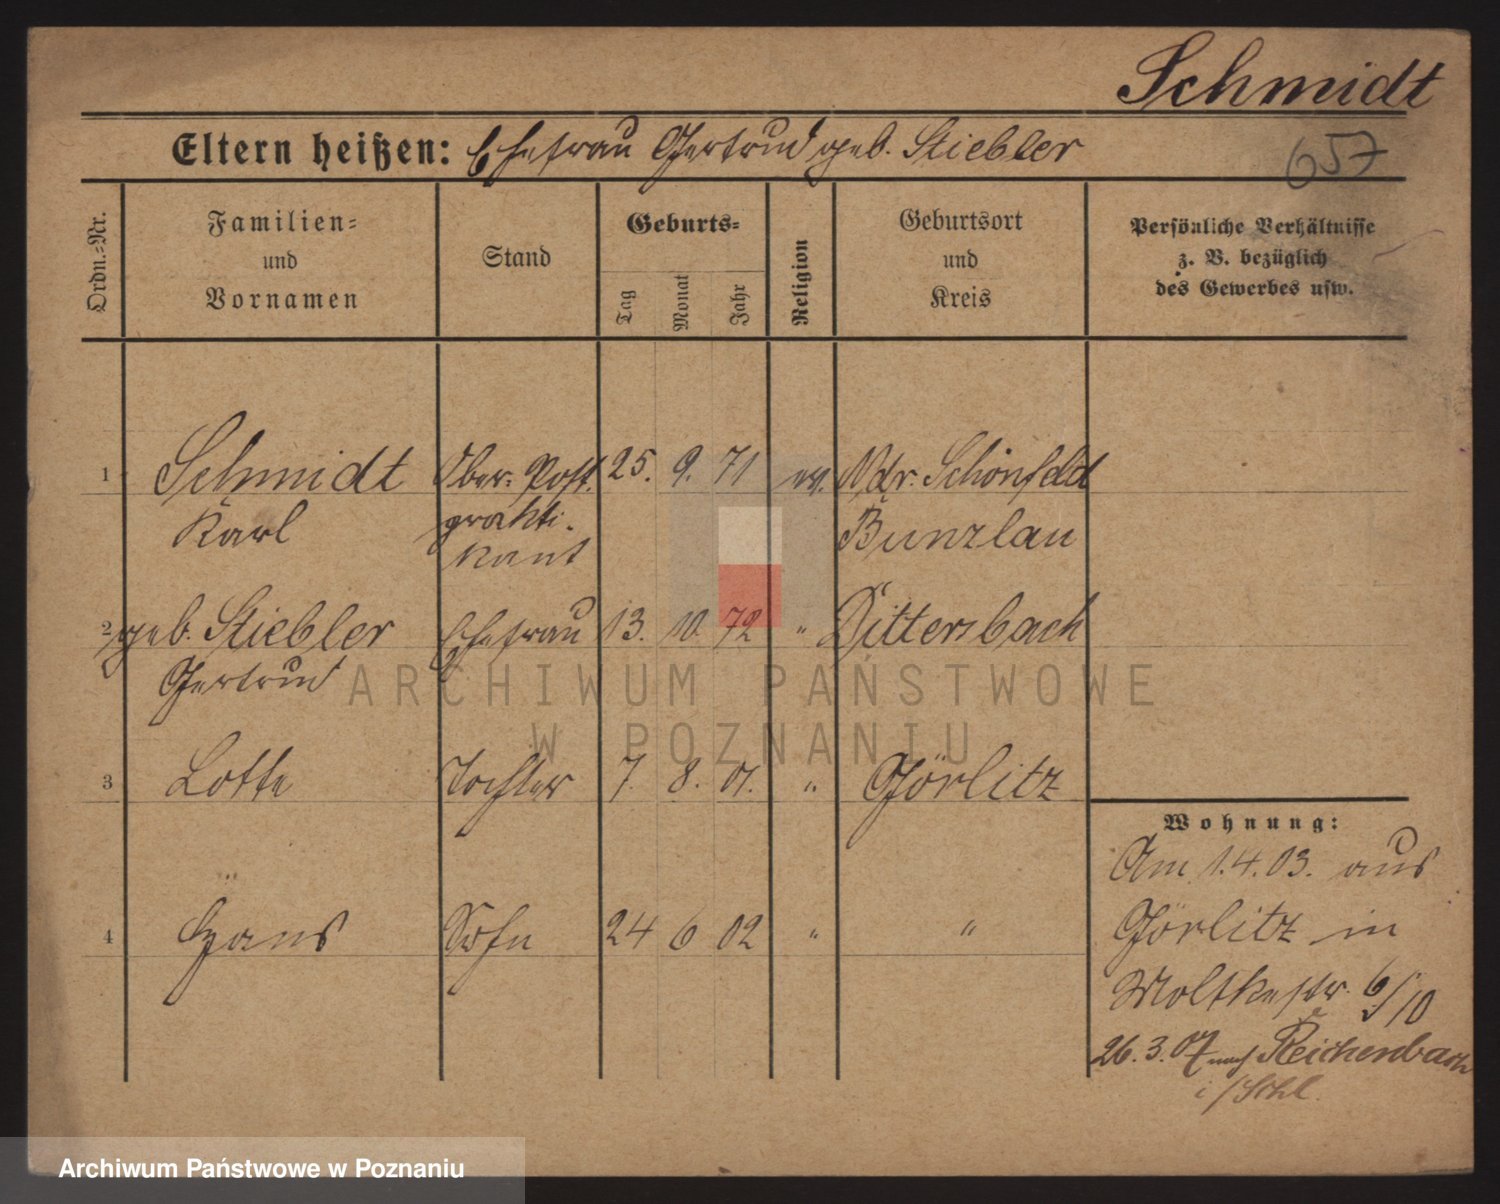 Schmidt
Eltern heißen: Ehefrau Gertrud geb. Stiebler
657
Ordn.-Nr.
Familien- und Vornamen
Stand
Geburts-
Tag
Monat
Jahr
Religion
Geburtsort und Kreis
Persönliche Verhältnisse
z. B. bezüglich
des Gewerbes usw.
1 Schmidt Ober-Post. 25. 9. 71 ev. Ndr. Schönfeld
Karl prakti- Bunzlau
kant
2 geb. Stiebler Ehefrau 13. 10. 72 " Dittersbach
Gertrud
3 Lotte Tochter 7. 8. 01. " Görlitz
4 Hans Sohn 24 6 02 " "
Wohnung:
Am 1.4.03. aus
Görlitz in
Moltkestr. 6/10
26.3.07 nach Reichenbach
i/Schl.
ARCHIWUM PAŃSTWOWE
W POZNANIU
Archiwum Państwowe w Poznaniu